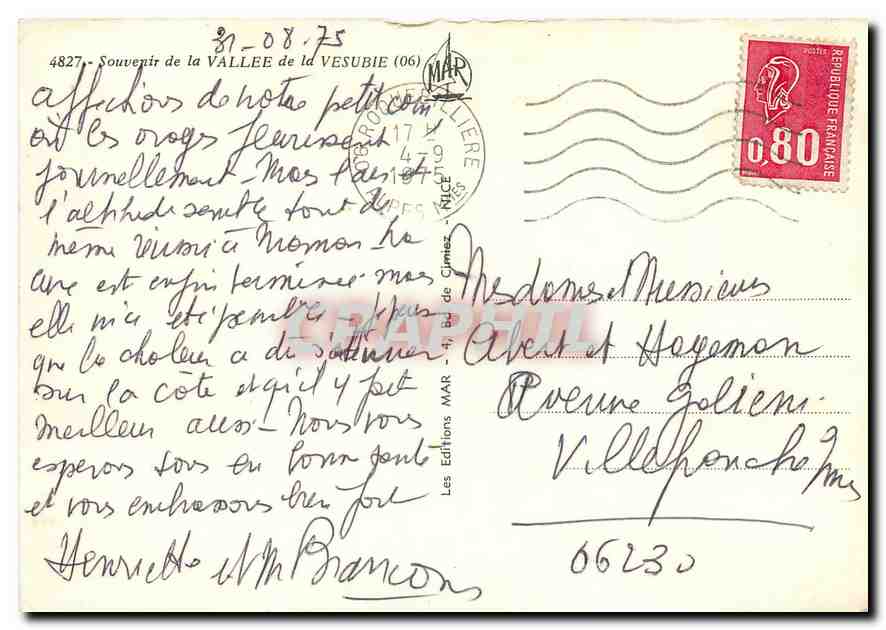 31-08-75
4827 - Souvenir de la VALLEE de la VESUBIE (06)
MAR
Affections de notre petit coin
où les orages fleurissent
journellement - Mais l'air et
l'altitude semble tout de
même réussir à Maman - La
cure est enfin terminée - mais
elle m'a été pénible -
que la chaleur a dû s'atténuer
sur la côte et qu'il y fait
meilleur aussi - Nous vous
espérons tous en bonne santé
et vous embrassons bien fort
Henriette et M Brancons
06 ROQUEBILLIERE
17 H
4 - 9
1975
ALPES MMES
Les Editions MAR - 4, Bd de Cimiez - NICE
POSTES
REPUBLIQUE FRANÇAISE
0,80
Mesdames et Messieurs
Abert et Hageman
Avenue Galieni
Villefranche s/mer
06230
CPAPHIL